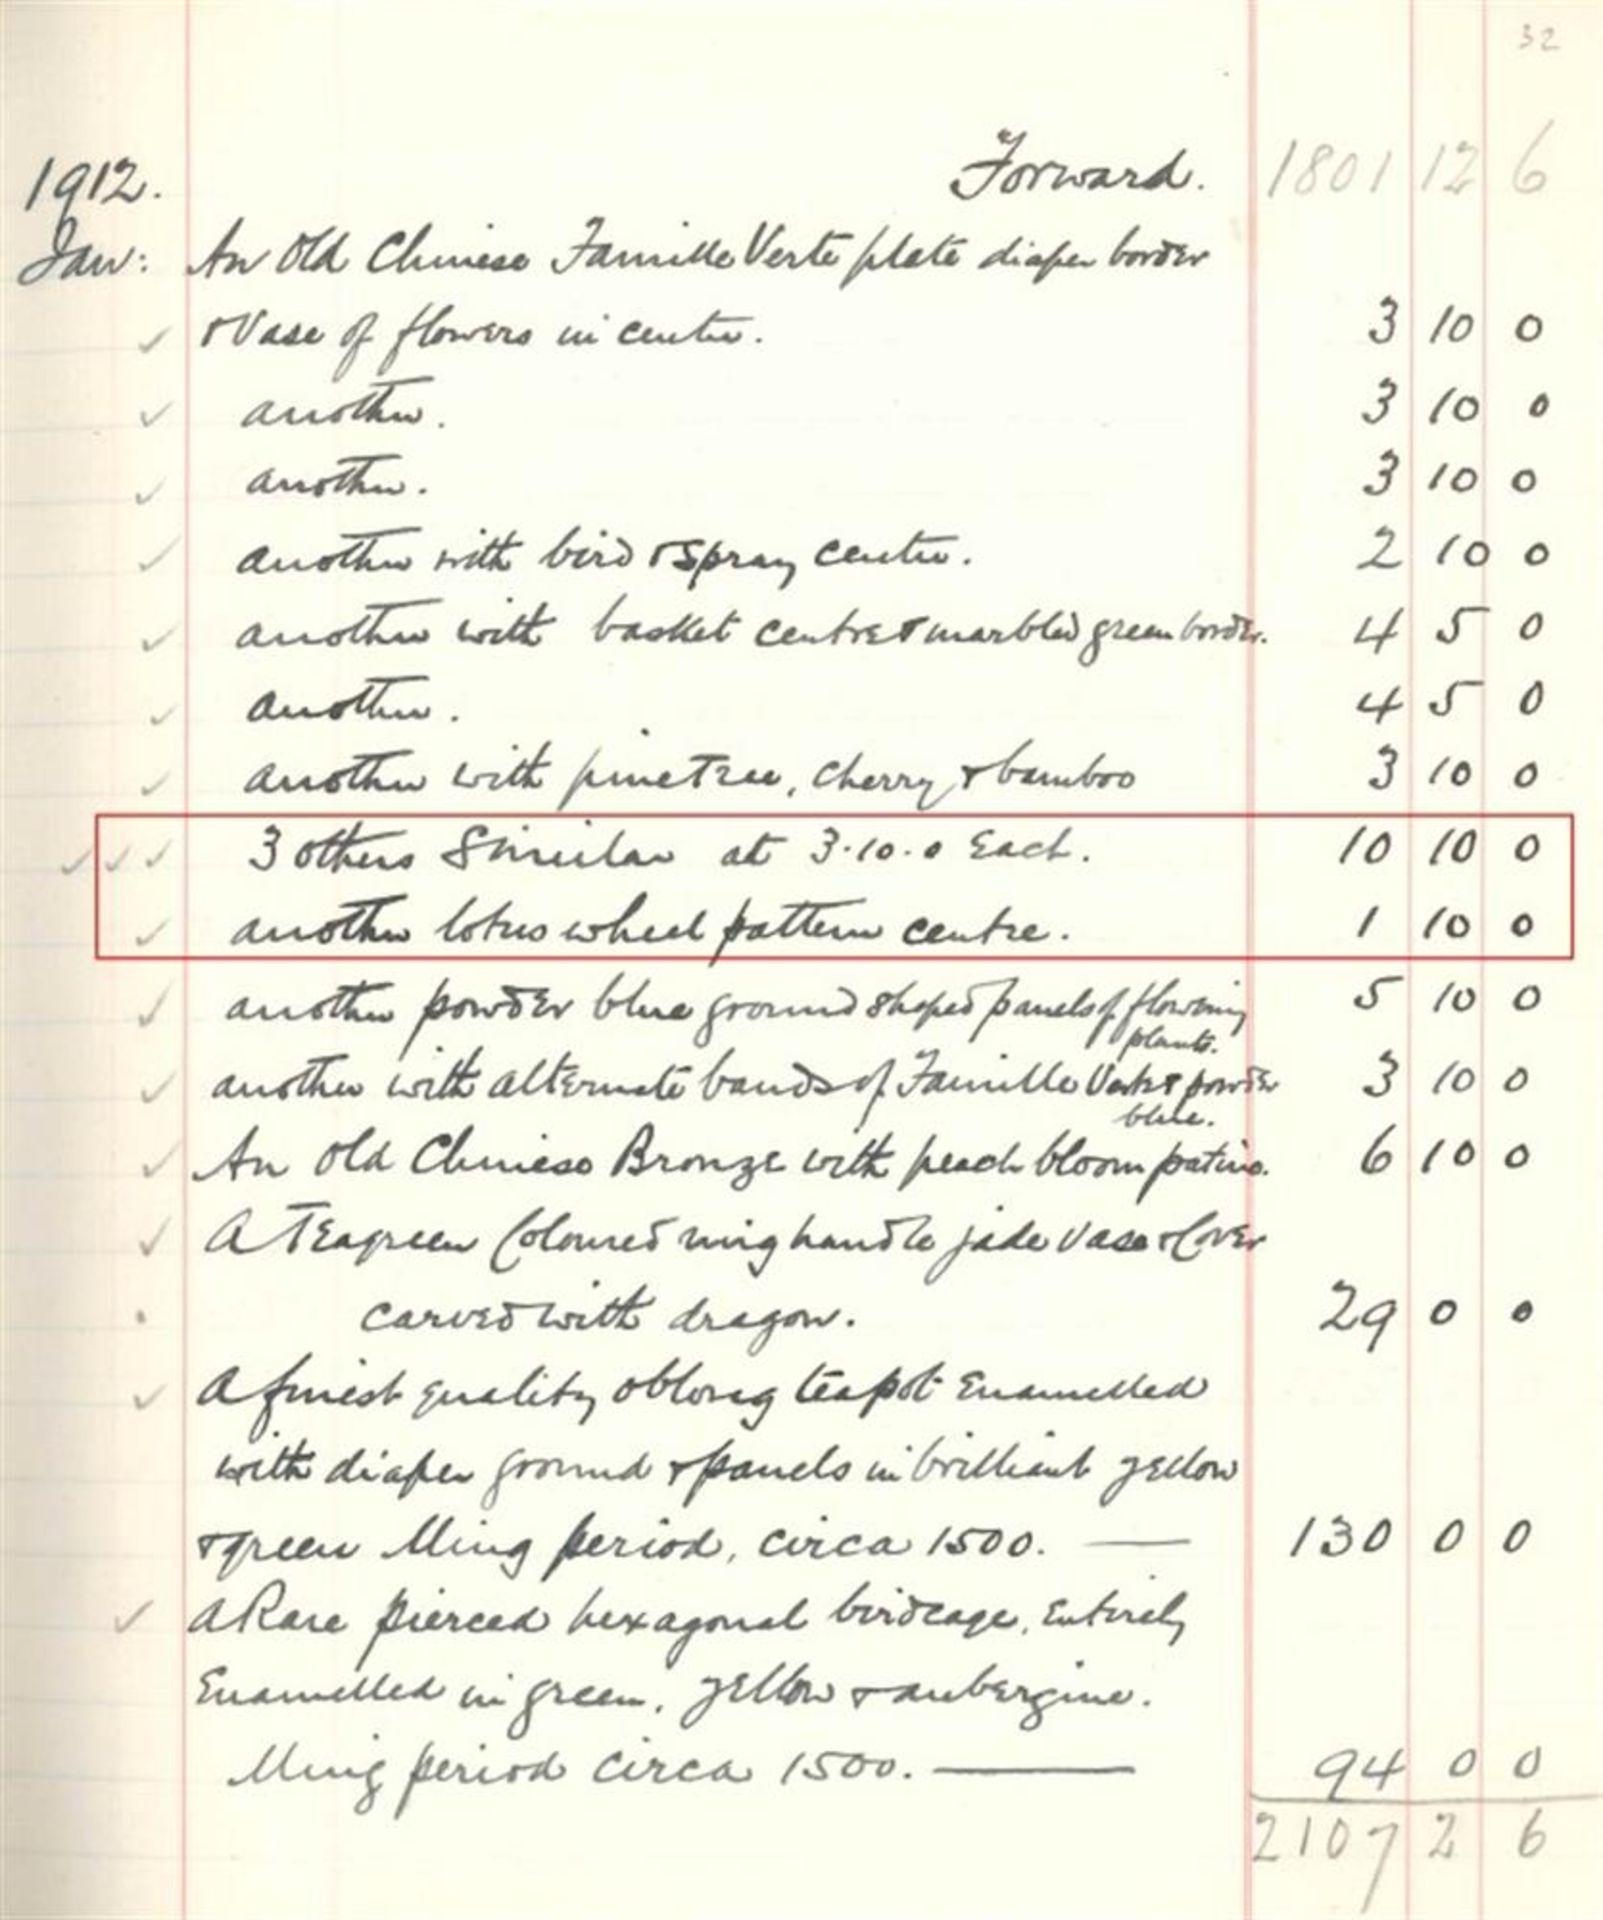 32
Forward. 1801 12 6
1912.
Jan: An Old Chinese Famille Verte plate diaper border
& Vase of flowers in centre. 3 10 0
another. 3 10 0
another. 3 10 0
another with bird & spray centre. 2 10 0
another with basket centre & marbled green border. 4 5 0
another. 4 5 0
another with pinetree, cherry & bamboo 3 10 0
3 others Similar at 3.10.0 Each. 10 10 0
another lotus wheel pattern centre. 1 10 0
another powder blue ground shaped panels of flowering 5 10 0
plants.
another with alternate bands of Famille Verte & powder 3 10 0
blue.
An Old Chinese Bronze with peach bloom patina. 6 10 0
A Teagreen Coloured ring handle jade Vase & Cover
carved with dragon. 29 0 0
A finest quality oblong teapot Enamelled
with diaper ground & panels in brilliant yellow
& green Ming period, circa 1500. — 130 0 0
A Rare pierced hexagonal birdcage, Entirely
Enamelled in green, yellow & aubergine.
Ming period circa 1500. — 94 0 0
2107 2 6